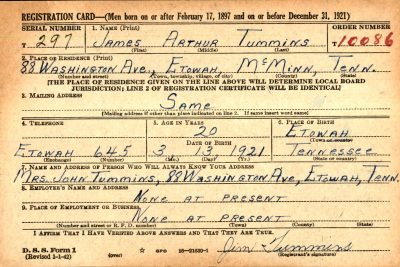 REGISTRATION CARD—(Men born on or after February 17, 1897 and on or before December 31, 1921)
SERIAL NUMBER 1. NAME (Print) ORDER NUMBER
T 297 James Arthur Tummins 10086
(First) (Middle) (Last)
2. PLACE OF RESIDENCE (Print)
88 Washington Ave., Etowah, McMinn, Tenn.
(Number and street) (Town, township, village, or city) (County) (State)
[THE PLACE OF RESIDENCE GIVEN ON THE LINE ABOVE WILL DETERMINE LOCAL BOARD
JURISDICTION; LINE 2 OF REGISTRATION CERTIFICATE WILL BE IDENTICAL]
3. MAILING ADDRESS
Same
[Mailing address if other than place indicated on line 2. If same insert word same]
4. TELEPHONE 5. AGE IN YEARS 6. PLACE OF BIRTH
20 Etowah
DATE OF BIRTH (Town or county)
Etowah 645 3 13 1921 Tennessee
(Exchange) (Number) (Mo.) (Day) (Yr.) (State or country)
7. NAME AND ADDRESS OF PERSON WHO WILL ALWAYS KNOW YOUR ADDRESS
Mrs. John Tummins, 88 Washington Ave, Etowah, Tenn.
8. EMPLOYER'S NAME AND ADDRESS
None at present
9. PLACE OF EMPLOYMENT OR BUSINESS
None at present
(Number and street or R. F. D. number) (Town) (County) (State)
I AFFIRM THAT I HAVE VERIFIED ABOVE ANSWERS AND THAT THEY ARE TRUE.
D. S. S. Form 1 GPO 16—21630-1 Jim Tummins
(Revised 1-1-42) (Registrant's signature)